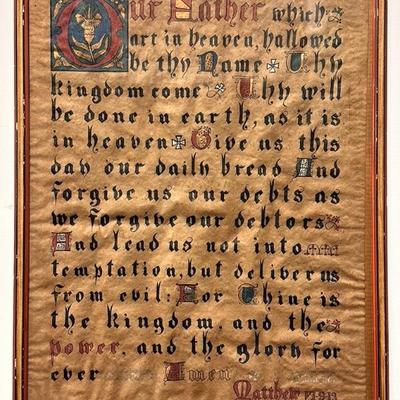 Our Father which
art in heaven, hallowed
be thy Name Thy
kingdom come Thy will
be done in earth, as it is
in heaven Give us this
day our daily bread And
forgive us our debts as
we forgive our debtors
And lead us not into
temptation, but deliver us
from evil: For Thine is
the kingdom, and the
power, and the glory for
ever Amen
Matthew